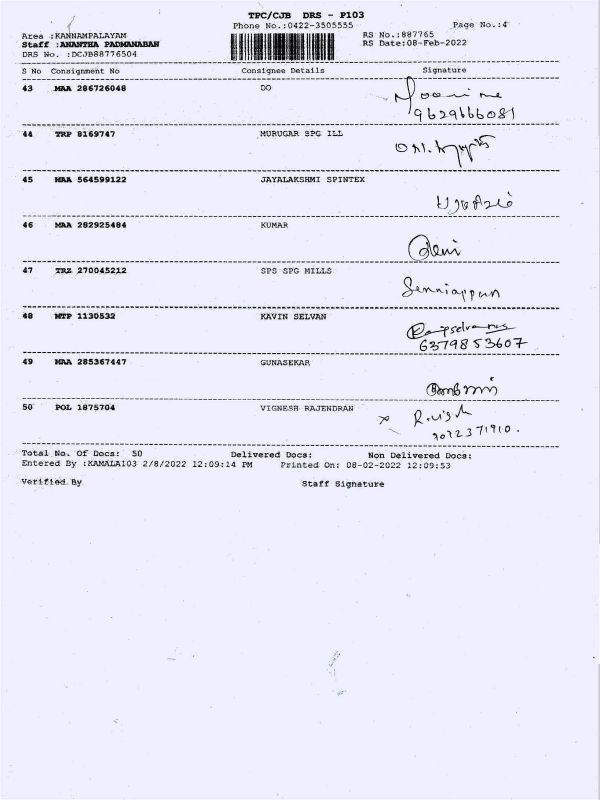 TPC/CJB DRS - P103
Phone No.:0422-3505555 Page No.:4
Area :KANNAMPALAYAM RS No.:887765
Staff :ANANTHA PADMANABAN RS Date:08-Feb-2022
DRS No. :DCJB88776504
S No Consignment No Consignee Details Signature
43 MAA 286726048 DO
9629666081
44 TRP 8169747 MURUGAR SPG ILL
45 MAA 564599122 JAYALAKSHMI SPINTEX
46 MAA 282925484 KUMAR
47 TRZ 270045212 SPS SPG MILLS
Senniappan
48 MTP 1130532 KAVIN SELVAN
6379853607
49 MAA 285367447 GUNASEKAR
50 POL 1875704 VIGNESH RAJENDRAN
Total No. Of Docs: 50 Delivered Docs: Non Delivered Docs:
Entered By :KAMALA103 2/8/2022 12:09:14 PM Printed On: 08-02-2022 12:09:53
Verified By Staff Signature